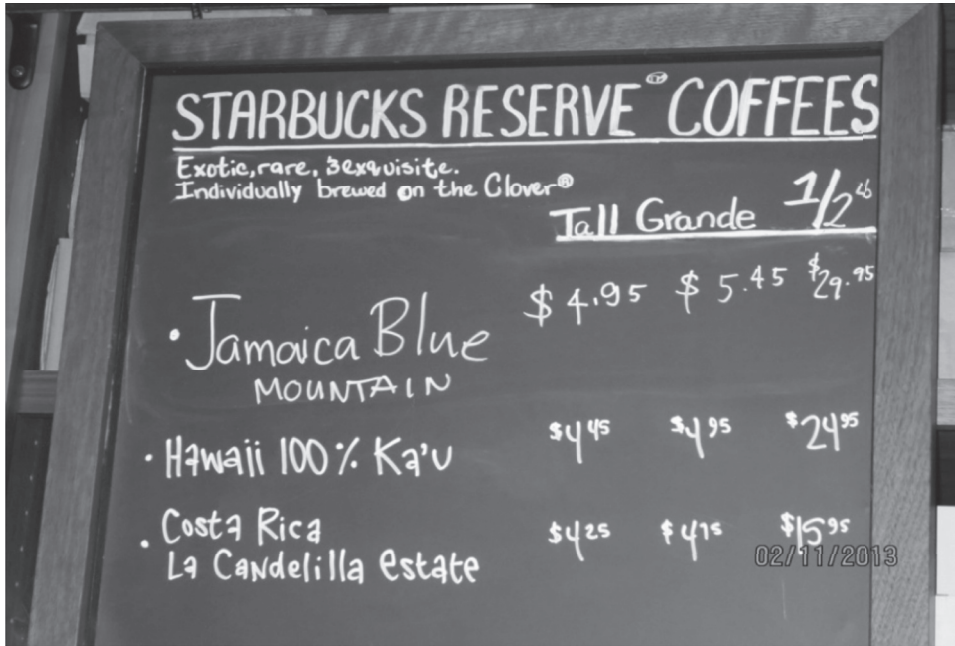 STARBUCKS RESERVE® COFFEES
Exotic, rare, & exquisite.
Individually brewed on the Clover®
Tall Grande 1/2 LB
• Jamaica Blue $4.95 $5.45 $29.95
MOUNTAIN
• Hawaii 100% Ka'u $4.45 $4.95 $24.95
• Costa Rica $4.25 $4.75 $15.95
La Candelilla Estate
02/11/2013